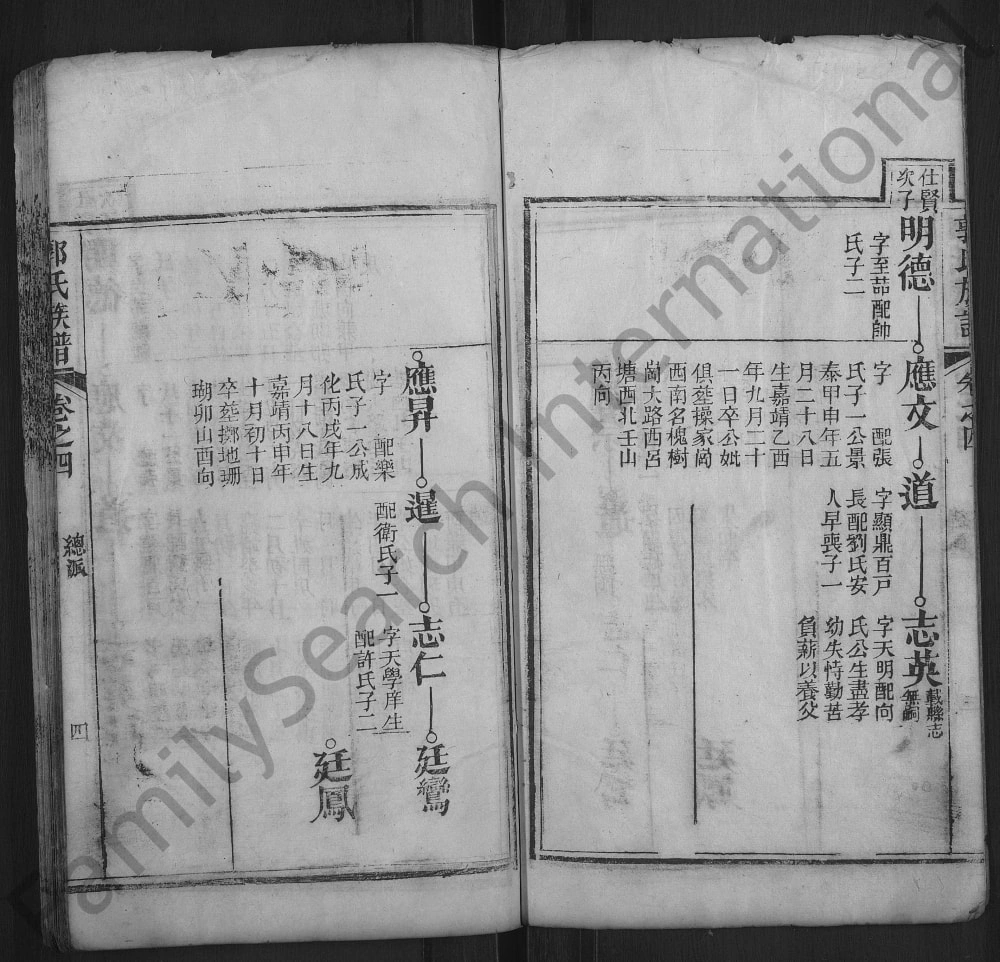 仕賢
次子
明德
字至喆配帥
氏子二
應文
字 配張
氏子一公景
泰甲申年五
月二十八日
生嘉靖乙酉
年九月二十
一日卒公妣
俱塟操家崗
西南名槐樹
崗大路西呂
塘西北壬山
丙向
道
字顯鼎百戸
長配劉氏安
人早喪子一
志英
載縣志
無嗣
字天明配向
氏公生盡孝
幼失恃勤苦
負薪以養父
應昇
字 配樂
氏子一公成
化丙戌年九
月十八日生
嘉靖丙申年
十月初十日
卒塟擲地珊
瑚卯山西向
暹
配衛氏子一
志仁
字天學庠生
配許氏子二
廷鸞
廷鳳
郭氏族譜
卷之四
總派
四
FamilySearch International